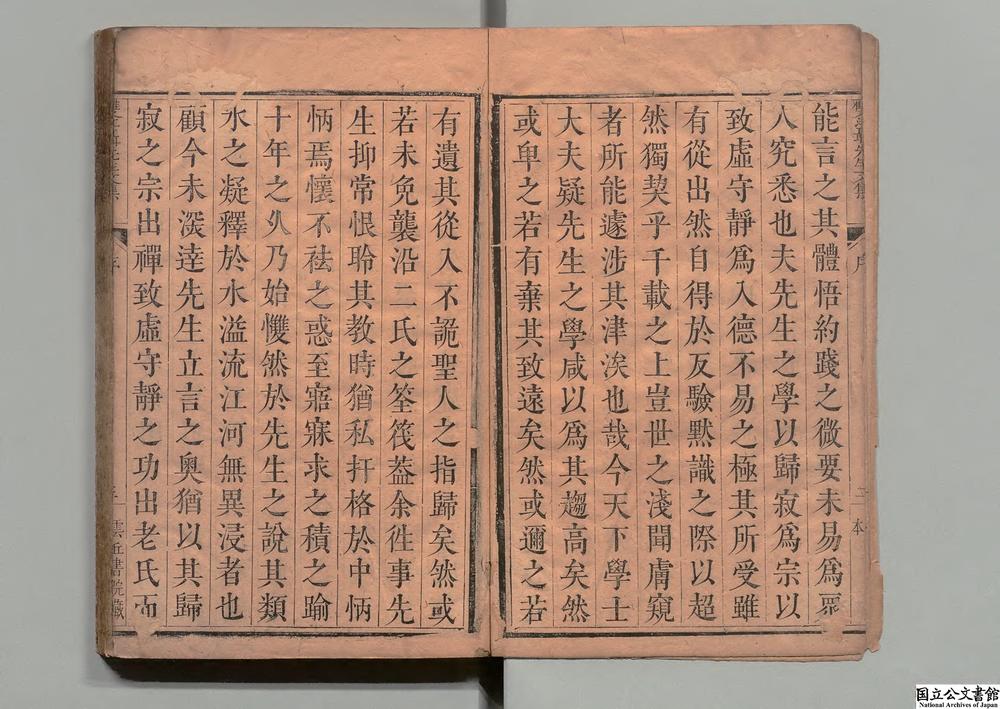 能言之其體悟約踐之微要未易爲眾
人究悉也夫先生之學以歸寂爲宗以
致虛守靜爲入德不易之極其所受雖
有從出然自得於反驗默識之際以超
然獨契乎千載之上豈世之淺聞膚窺
者所能遽涉其津涘也哉今天下學士
大夫疑先生之學咸以爲其趨高矣然
或卑之若有棄其致遠矣然或邇之若
有遺其從入不詭聖人之指歸矣然或
若未免襲沿二氏之筌筏葢余徃事先
生抑常恨聆其教時猶私扞格於中怲
怲焉懷不袪之惑至寤寐求之積之踰
十年之乆乃始戄然於先生之說其類
水之凝釋於水溢流江河無異浸者也
顧今未深達先生立言之奥猶以其歸
寂之宗出禪致虛守靜之功出老氏而
序
雲丘書院藏
国立公文書館
National Archives of Japan